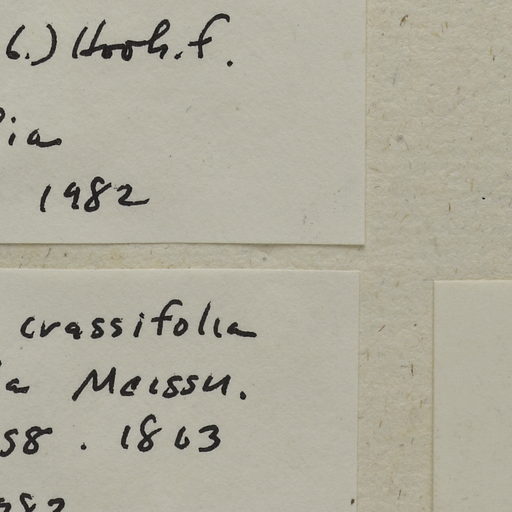 6.) Hook.f.
ia
1982
crassifolia
a Meissn.
58. 1863
982